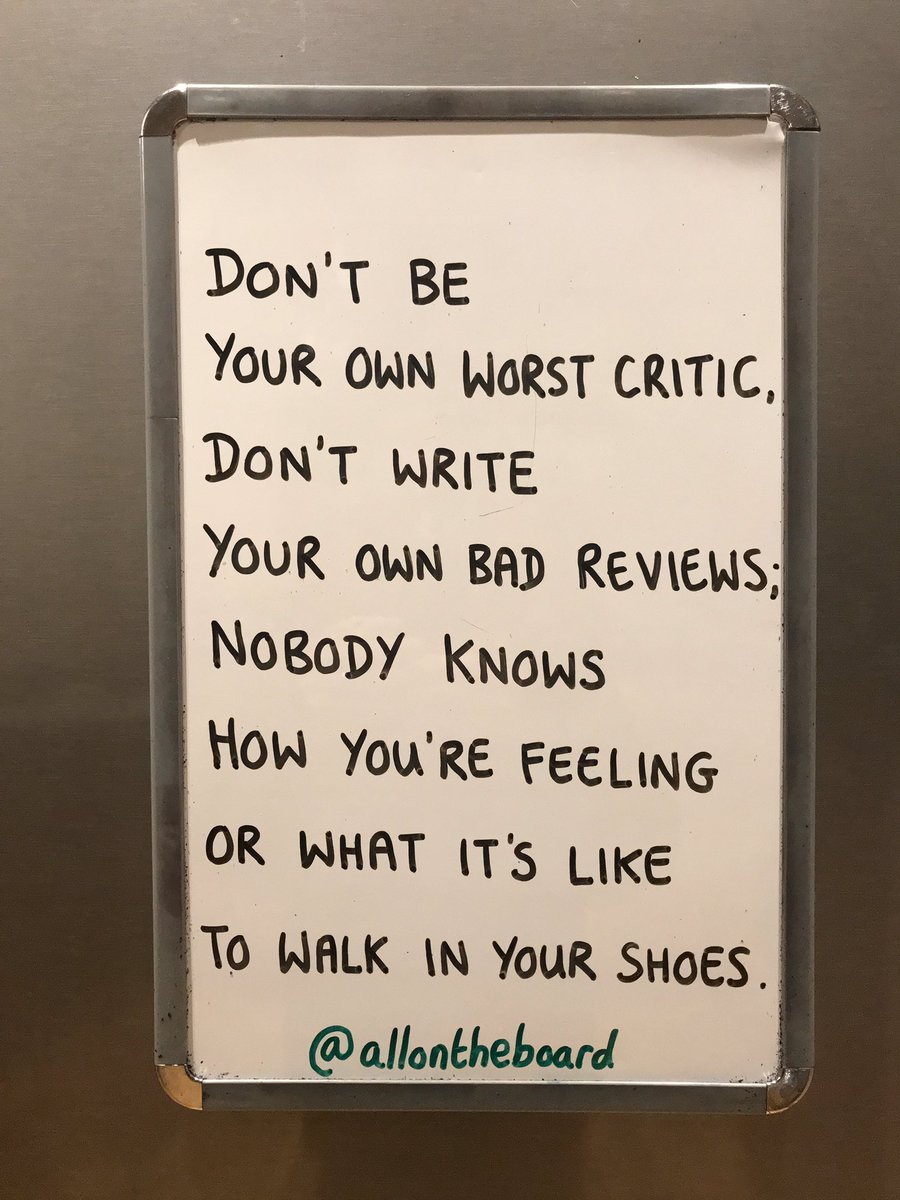 DON'T BE
YOUR OWN WORST CRITIC,
DON'T WRITE
YOUR OWN BAD REVIEWS;
NOBODY KNOWS
HOW YOU'RE FEELING
OR WHAT IT'S LIKE
TO WALK IN YOUR SHOES.
@allontheboard